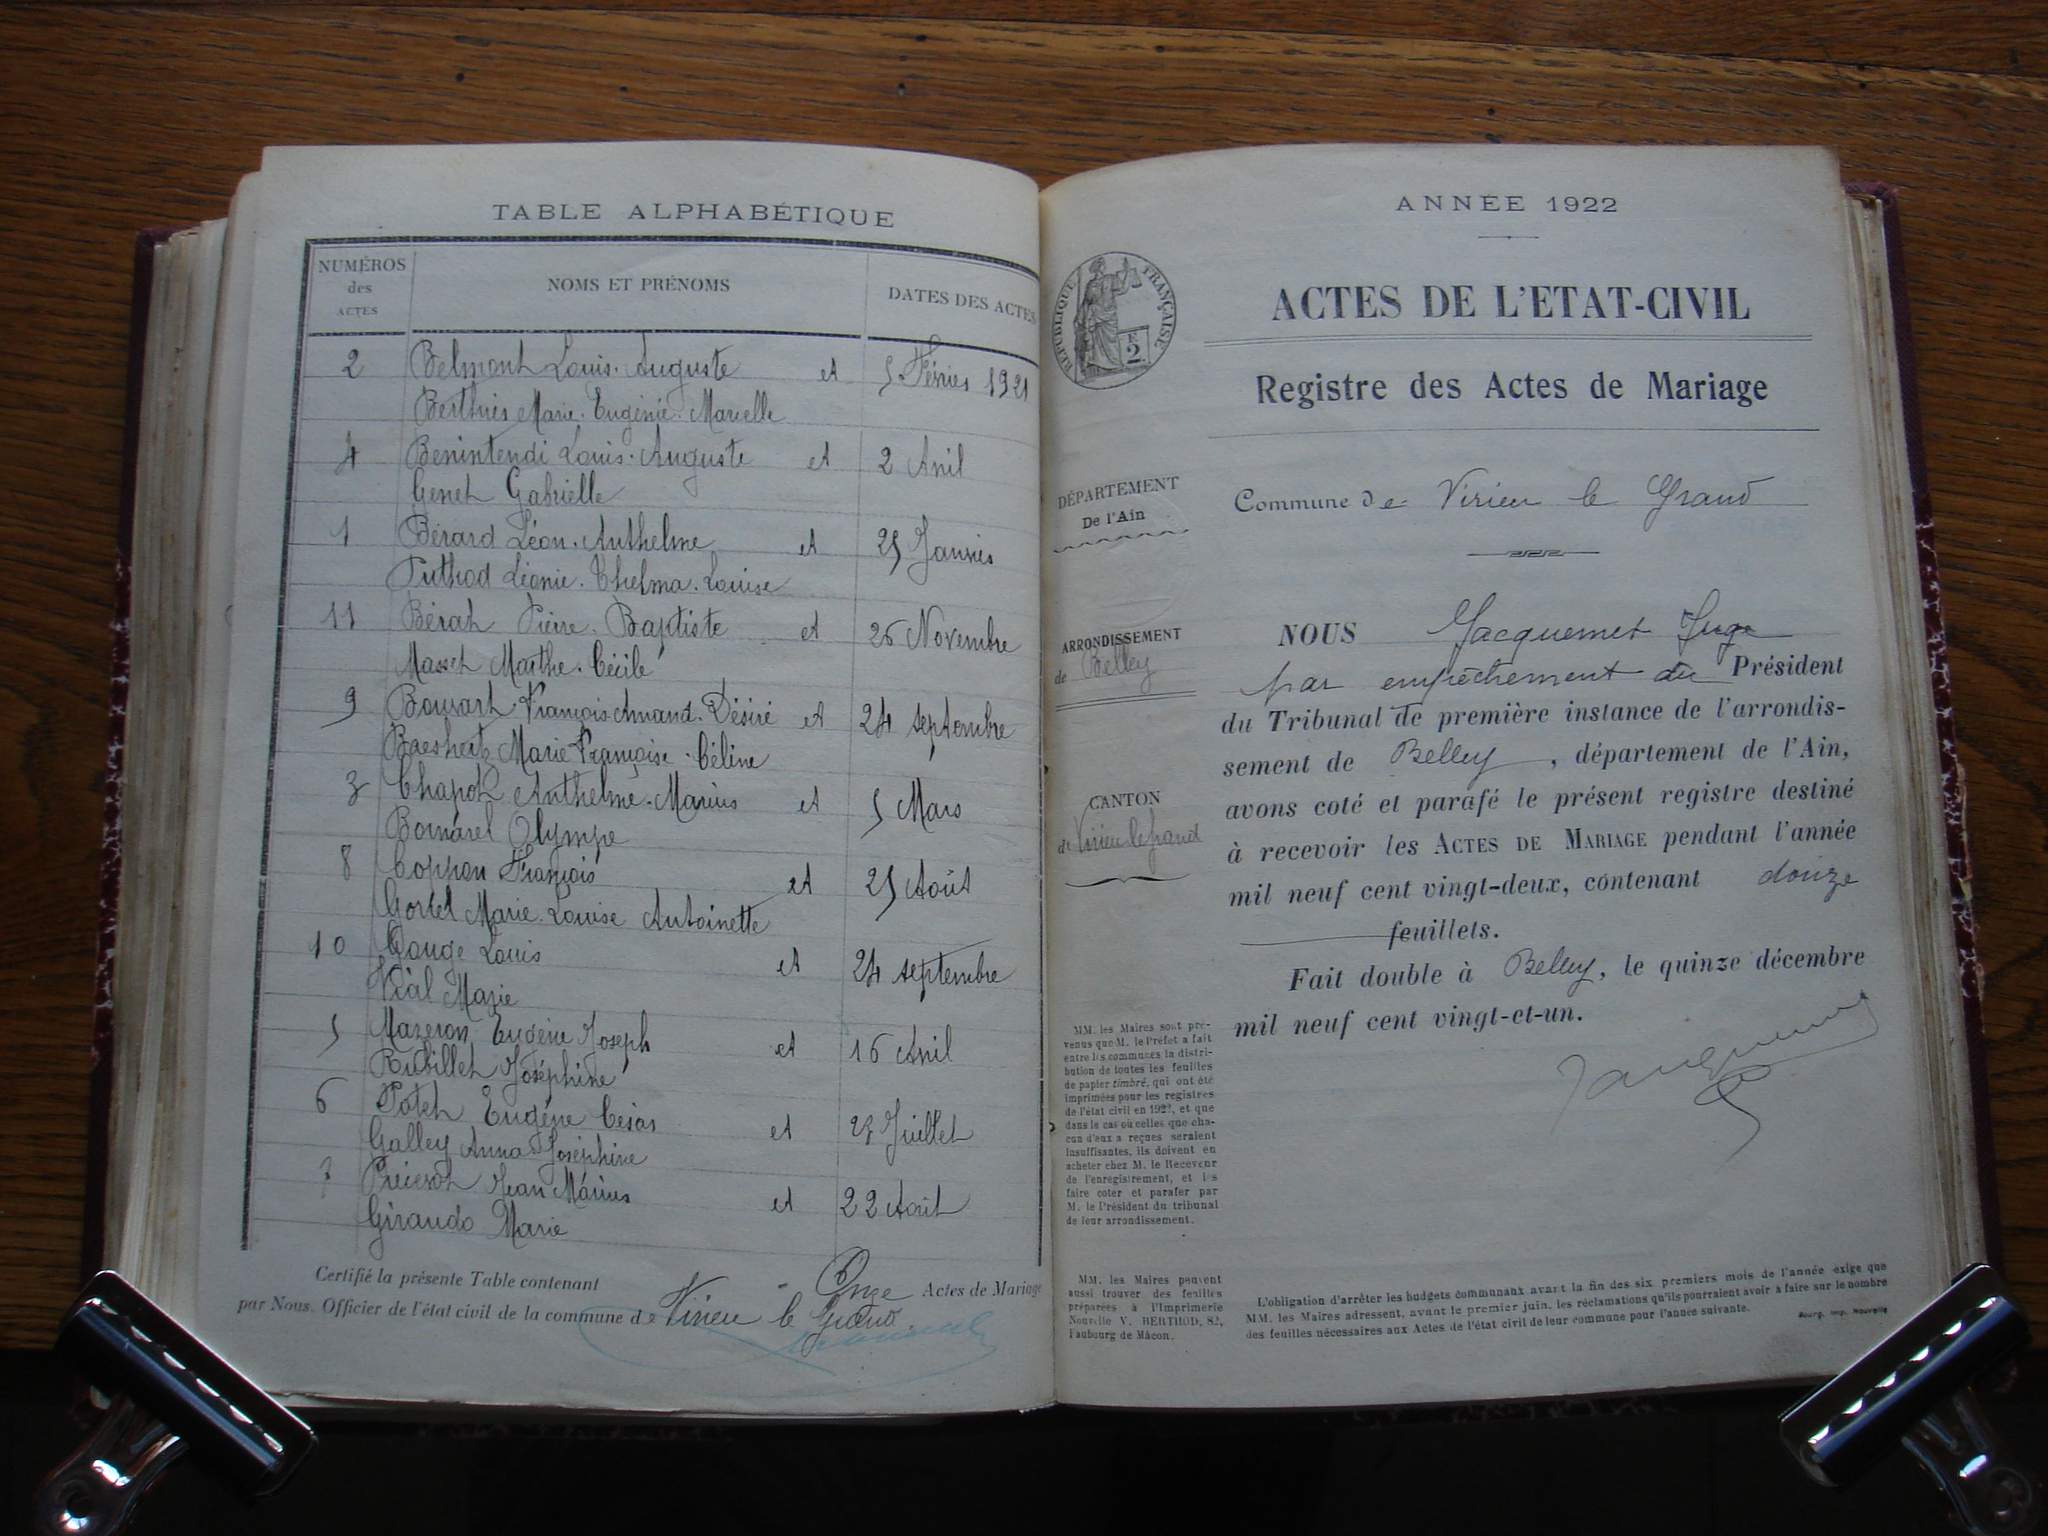 TABLE ALPHABÉTIQUE
NUMÉROS des ACTES
NOMS ET PRÉNOMS
DATES DES ACTES
2 Belmont Louis. Auguste et 5 Février 1921
Berthier Marie. Eugénie. Marcelle
4 Benintendi Louis. Auguste et 2 Avril
Genet Gabrielle
1 Bérard Léon. Anthelme et 25 Janvier
Puthod Léonie. Thelma. Louise
11 Bérat Pierre. Baptiste et 26 Novembre
Masset Marthe. Cécile
9 François Amand. Désiré et 24 septembre
Marie Françoise. Céline
3 Chapot Anthelme. Marius et 5 Mars
Bornarel Olympe
8 François et 25 Août
Marie. Louise Antoinette
10 Louis et 24 septembre
Vial Marie
5 Mazeron Eugène Joseph et 16 Avril
Rubillet Joséphine
6 Eugène César et Juillet
Galley Anna Joséphine
7 Jean Marius et 22 Août
Giraudo Marie
Certifié la présente Table contenant Onze Actes de Mariage
par Nous, Officier de l'état civil de la commune de Virieu le Grand.
ANNÉE 1922
RÉPUBLIQUE FRANÇAISE
2 F
ACTES DE L'ETAT-CIVIL
Registre des Actes de Mariage
DÉPARTEMENT
De l'Ain
Commune de Virieu le Grand
ARRONDISSEMENT
de Belley
CANTON
de Virieu le grand
NOUS Jacquemet Juge
par empêchement du Président
du Tribunal de première instance de l'arrondis-
sement de Belley, département de l'Ain,
avons coté et parafé le présent registre destiné
à recevoir les ACTES DE MARIAGE pendant l'année
mil neuf cent vingt-deux, contenant douze
feuillets.
Fait double à Belley, le quinze décembre
mil neuf cent vingt-et-un.
Jacquemet
MM. les Maires sont pré-
venus que M. le Préfet a fait
entre les communes la distri-
bution de toutes les feuilles
de papier timbré, qui ont été
imprimées pour les registres
de l'état civil en 1922, et que
dans le cas où celles que cha-
cun d'eux a reçues seraient
insuffisantes, ils doivent en
acheter chez M. le Receveur
de l'enregistrement, et les
faire coter et parafer par
M. le Président du tribunal
de leur arrondissement.
MM. les Maires peuvent
aussi trouver des feuilles
préparées à l'Imprimerie
Nouvelle V. BERTHOD, 82,
Faubourg de Mâcon.
L'obligation d'arrêter les budgets communaux avant la fin des six premiers mois de l'année exige que
MM. les Maires adressent, avant le premier juin, les réclamations qu'ils pourraient avoir à faire sur le nombre
des feuilles nécessaires aux Actes de l'état civil de leur commune pour l'année suivante.
Bourg, Imp. Nouvelle